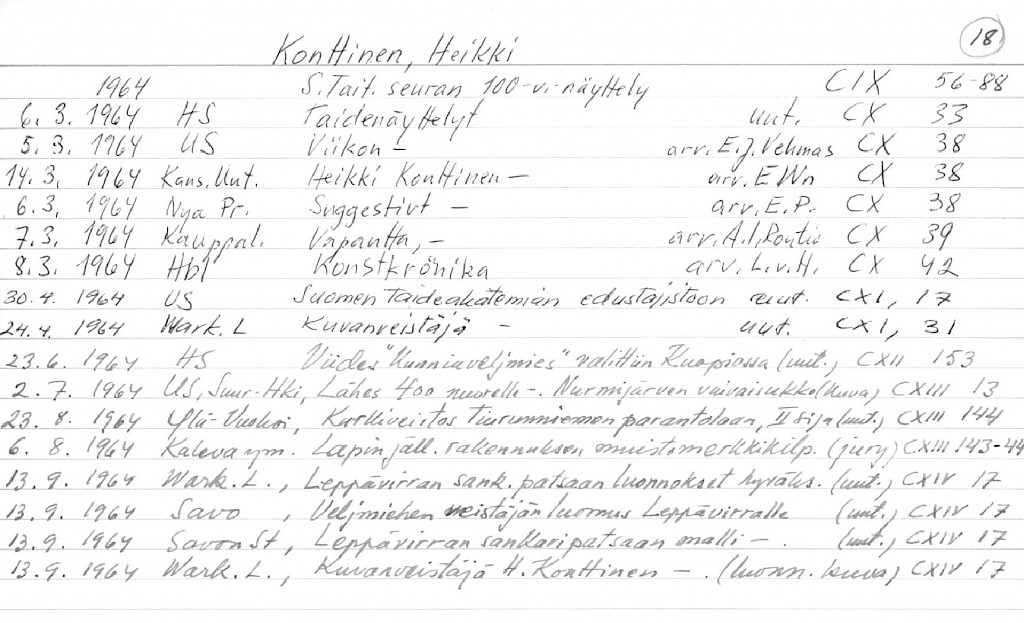 18
Konttinen, Heikki
1964 S. Tait. seuran 100-v. näyttely CIX 56-88
6. 3. 1964 HS Taidenäyttelyt uut. CX 33
5. 3. 1964 US Viikon - arv. E.J. Vehmas CX 38
14. 3. 1964 Kans. Uut. Heikki Konttinen - arv. EWn CX 38
6. 3. 1964 Nya Pr. Suggestivt - arv. E.P. CX 38
7. 3. 1964 Kauppal. Vapautta, - arv. A.I. Routio CX 39
8. 3. 1964 Hbl Konstkrönika arv. L.v.H. CX 42
30. 4. 1964 US Suomen taideakatemian edustajistoon uut. CXI, 17
24. 4. 1964 Wark. L Kuvanveistäjä - uut. CXI, 31
23. 6. 1964 HS Viides "Kunniaveljmies" valittiin Kuopiossa (uut.) CXII 153
2. 7. 1964 US, Suur-Hki, Lähes 400 nuorelle -. Nurmijärven vaivaisukko (kuva) CXIII 13
23. 8. 1964 Ylä-Vuoksi, Korkiveistos Tiuruniemen parantolaan, II sija (uut.) CXIII 144
6. 8. 1964 Kaleva ym. Lapin jäll. rakennuksen muistomerkkikilp. (jury) CXIII 143-44
13. 9. 1964 Wark. L., Leppävirran sank. patsaan luonnokset hyväks. (uut.) CXIV 17
13. 9. 1964 Savo, Veljmiehen veistäjän luomus Leppävirralle (uut.) CXIV 17
13. 9. 1964 Savon St, Leppävirran sankaripatsaan malli -. (uut.) CXIV 17
13. 9. 1964 Wark. L., Kuvanveistäjä H. Konttinen -. (luonn. kuva) CXIV 17